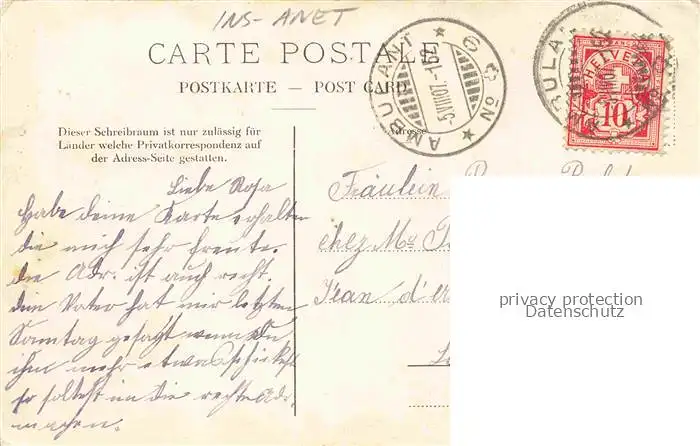 INS-ANET
CARTE POSTALE
POSTKARTE — POST CARD
AMBULANT
No 6
5.VIII.07.
AMBULANT
HELVETIA
10
Dieser Schreibraum ist nur zulässig für
Länder welche Privatkorrespondenz auf
der Adress-Seite gestatten.
Adresse
Liebe Rosa
Habe deine Karte erhalten
die mich sehr freute.
die Adr. ist auch recht.
dein Vater hat mir letzten
Sonntag gesagt wenn Du
ihm mehr etwas schickest
so solltest im die rechte Adr.
machen.
Fräulein
chez Mr
Jean d'
privacy protection
Datenschutz